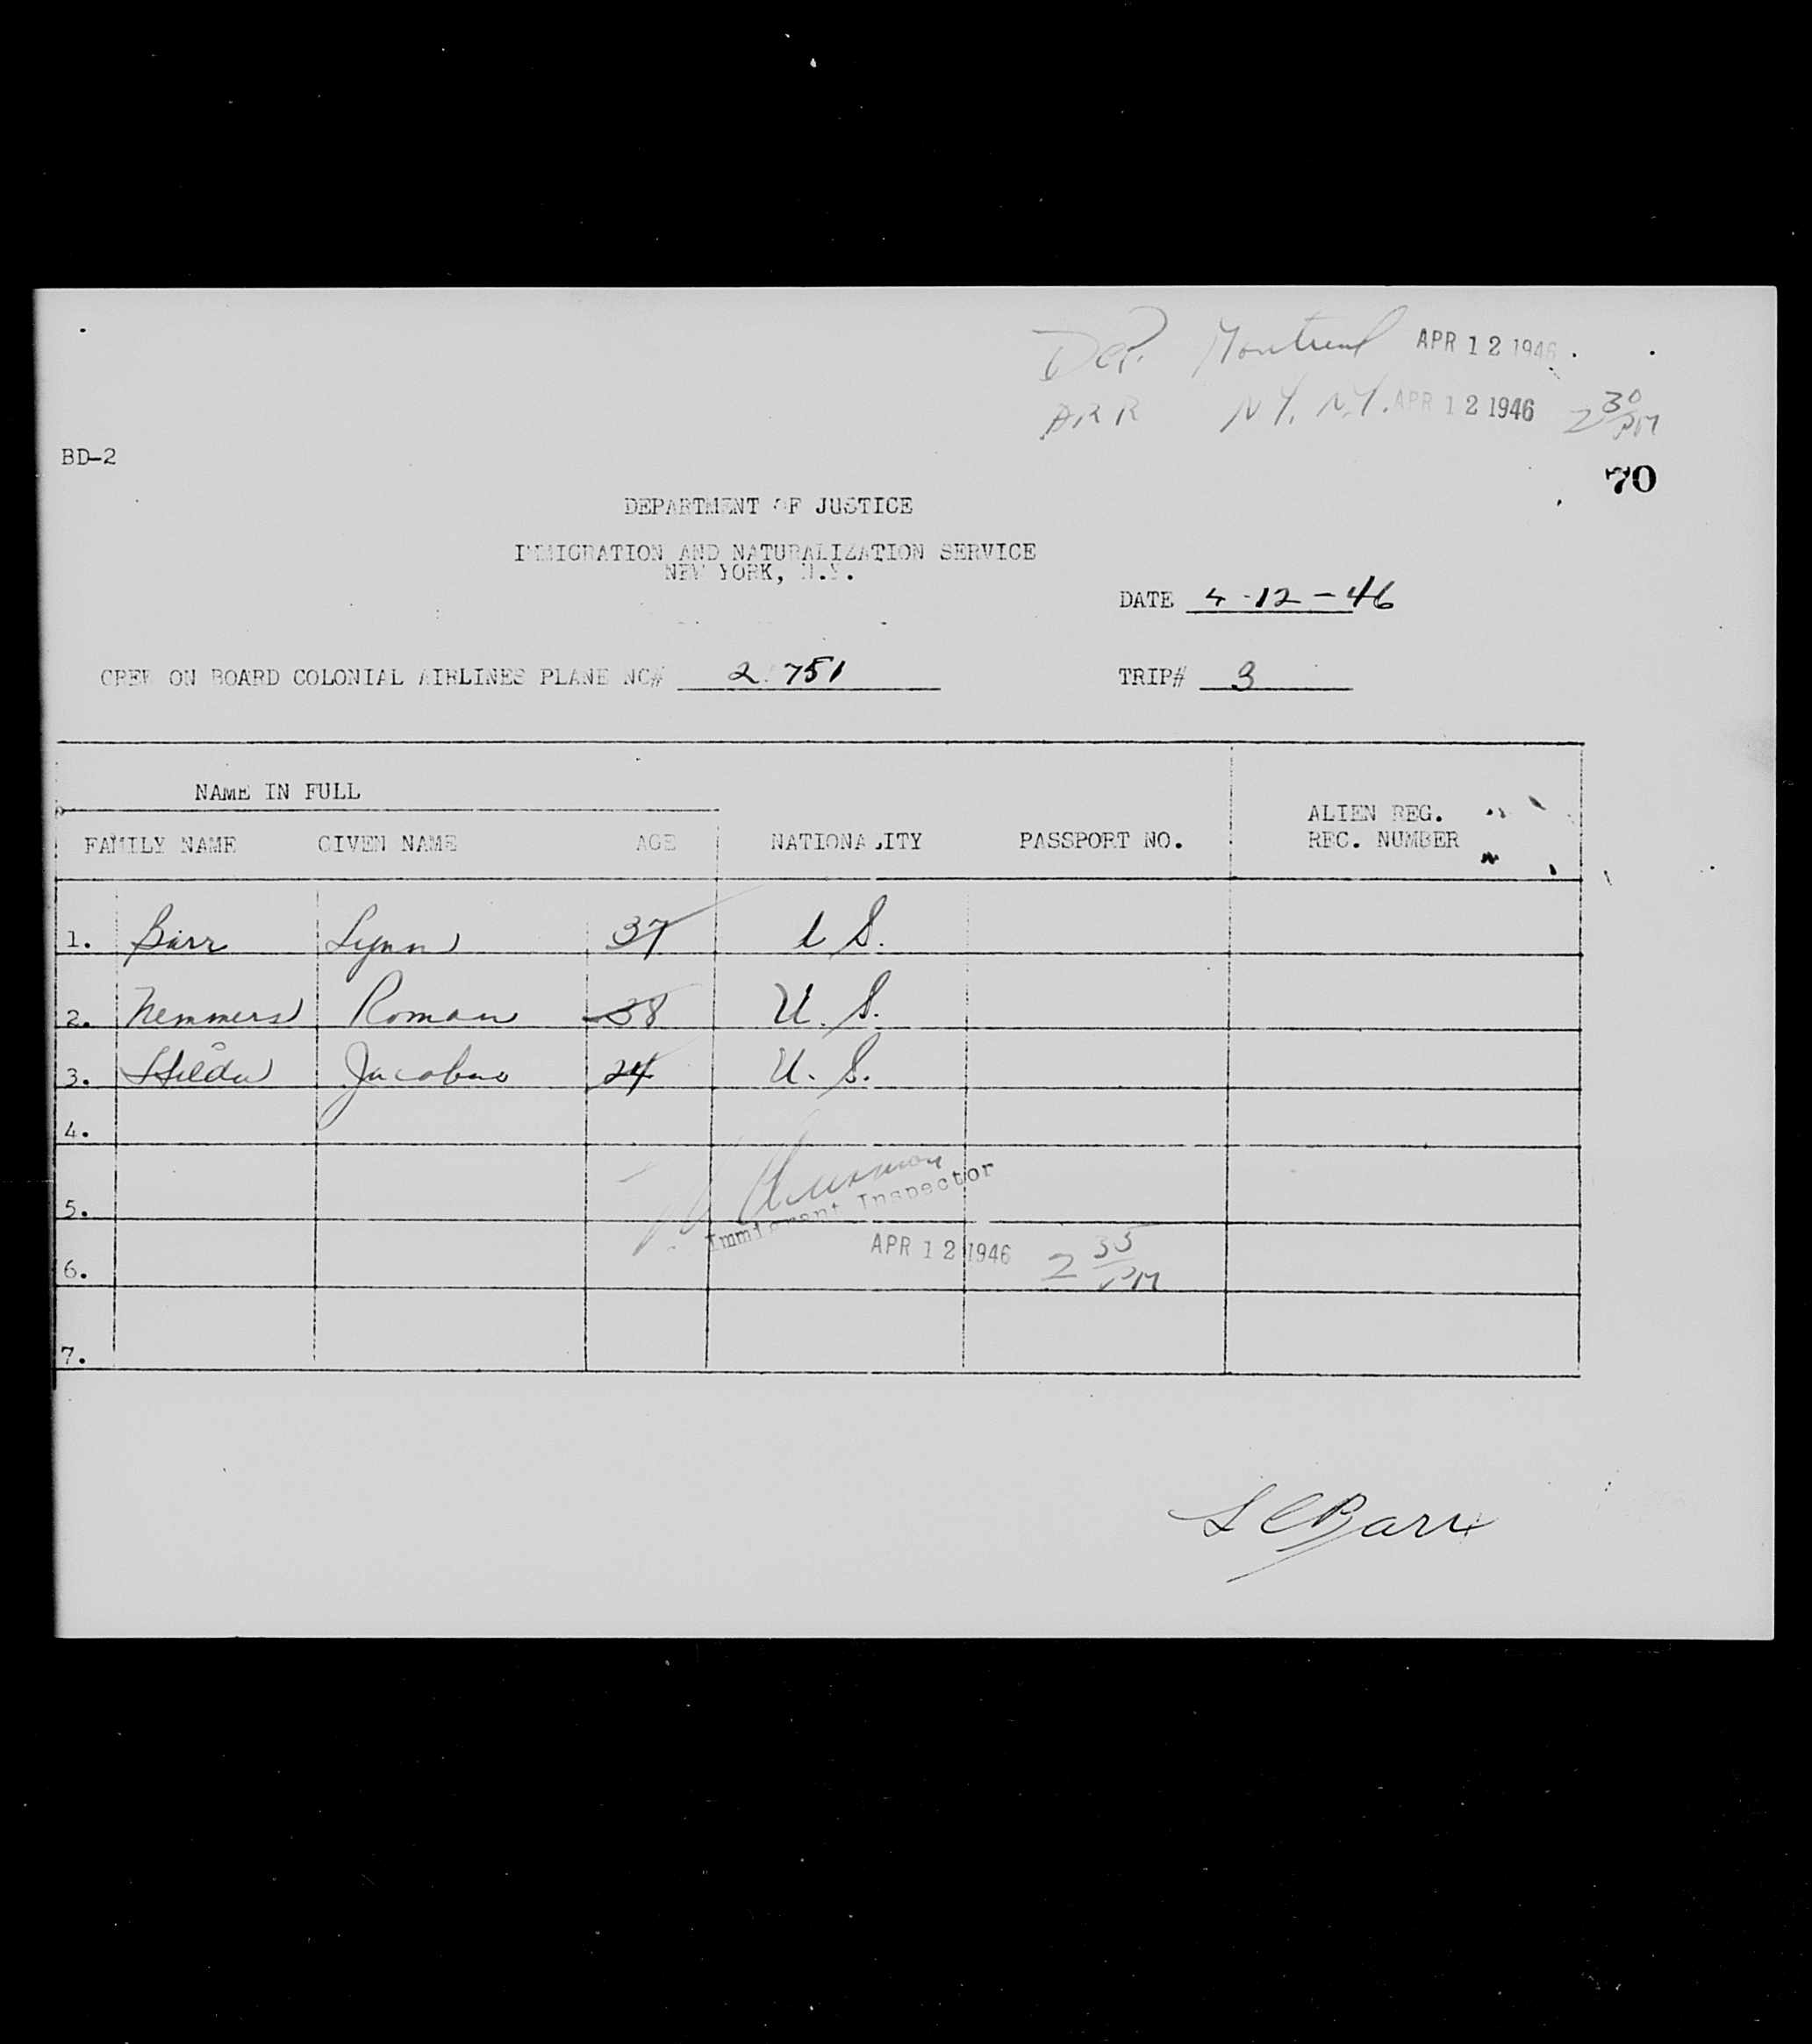 Dep. Montreal APR 12 1946
ARR N.Y. N.Y. APR 12 1946 2 30 PM
BD-2
70
DEPARTMENT OF JUSTICE
IMMIGRATION AND NATURALIZATION SERVICE
NEW YORK, N.Y.
DATE 4-12-46
CREW ON BOARD COLONIAL AIRLINES PLANE NC# 2 751 TRIP# 3
NAME IN FULL
FAMILY NAME GIVEN NAME AGE NATIONALITY PASSPORT NO. ALIEN REG. REC. NUMBER
1. Barr Lynn 37 U S.
2. Nemmers Roman 38 U. S.
3. Hilda Jacobus 24 U. S.
4.
5.
Immigrant Inspector
APR 12 1946 2 35 PM
6.
7.
L C Barr